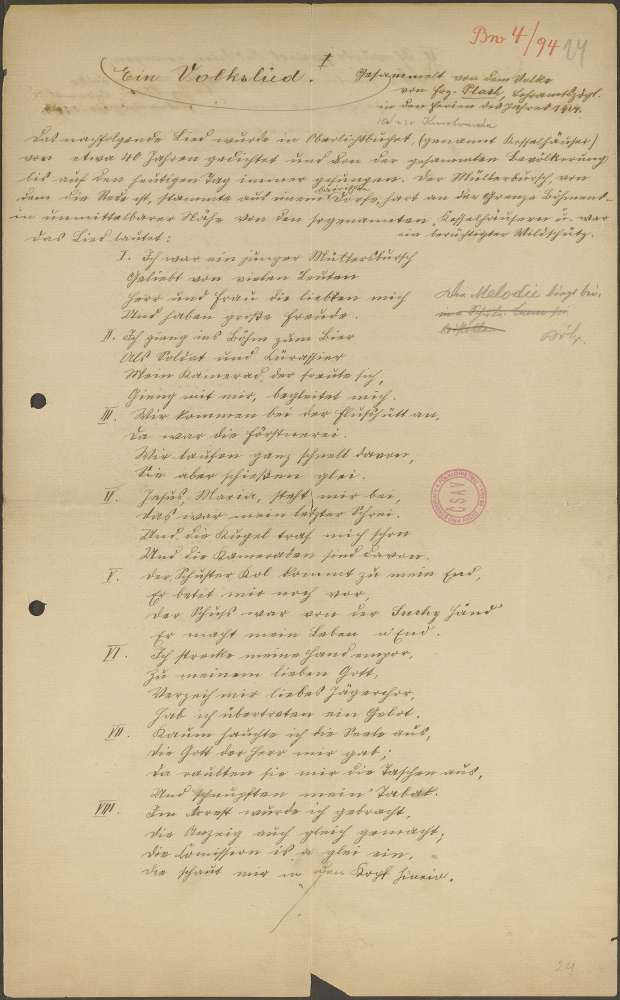 Bw 4/94
24
I
Ein Volkslied.
Gesammelt von dem Volke
von Joz. Plach, Lehramtszögl.
in den Ferien des Jahres 1914.
Das nachfolgende Lied wurde in Oberlichtbuchet, (genannt Kesselhäuser)
vor etwa 40 Jahren gedichtet und von der gesammten Bevölkerung
bis auf den heutigen Tag immer gesungen. Der Müllerbursch, von
dem die Rede ist, stammte aus einem Dorfe, hart an der Grenze Böhmens
in unmittelbarer Nähe von den sogenannten Kesselhäusern u. war
ein berüchtigter Wildschütz.
Das Lied lautet:
I. Ich war ein junger Müllersbursch
Geliebt von vielen Leuten
Herr und Frau die liebten mich
Und haben große Freude.
Die Melodie liegt bei.
II. Ich gieng ins Böhm zum Bier
Als Soldat und Kürassier
Mein Kamerad, der freute sich,
Gieng mit mir, begleitet mich.
III. Wir kommen bei der Flußhütt an,
Da war die Förstnerei.
Wir laufen ganz schnell davon,
Sie aber schießen glei.
IV. Jesus, Maria, steht mir bei,
Das war mein letzter Schrei.
Und die Kugel traf mich schon
Und die Kameraden sind davon.
V. Der Schuster Kol kommt zu mein End,
Er betet mir noch vor,
Der Schuß war von der Händ
Er macht mein Leben a End.
VI. Ich strecke meine Hand empor,
Zu meinem lieben Gott,
Verzeih mir liebes Jägerchor,
Hab ich übertreten ein Gebot.
VII. Kaum hauchte ich die Seele aus,
Die Gott der Herr mir gab;
Da raubten sie mir die Taschen aus,
Und schnupften mein Tabak.
VIII. Im Arrest wurde ich gebracht,
Die Anzeig auch gleich gemacht;
Die Comission is a glei ein,
Die schaut mir in den Kopf hinein.
24